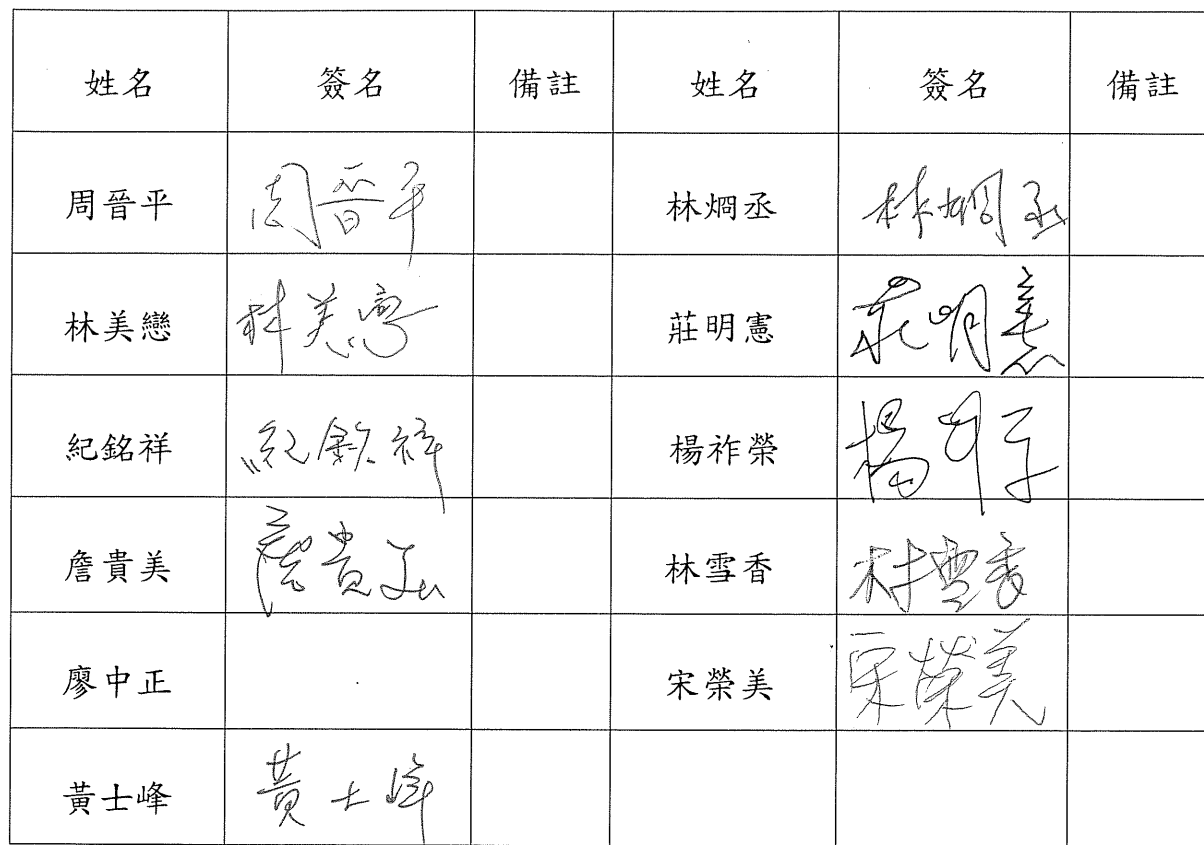 姓名 簽名 備註 姓名 簽名 備註
周晉平 周晉平 林烱丞 林烱丞
林美戀 林美戀 莊明憲 莊明憲
紀銘祥 紀銘祥 楊祚榮 楊
詹貴美 詹貴美 林雪香 林雪香
廖中正 宋榮美 宋榮美
黃士峰 黃士峰